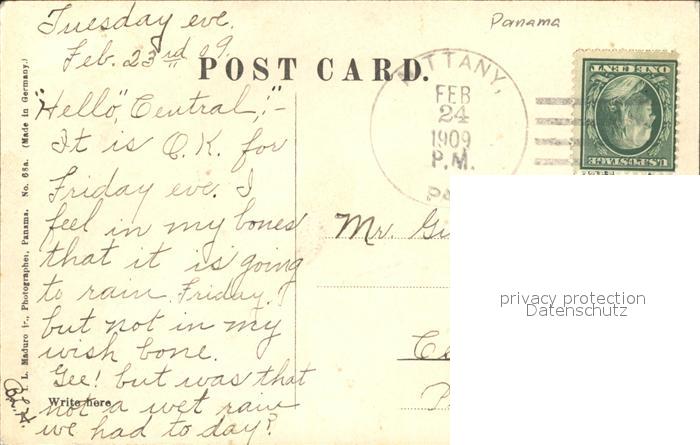 Tuesday eve.
Feb. 23rd 09.
"Hello", Central,:-
It is O.K. for
Friday eve. I
feel in my bones
that it is going
to rain Friday,
but not in my
wish bone.
Gee! but was that
not a wet rain
we had to day?
Write here
I. L. Maduro jr., Photographer, Panama. No. 68a. (Made in Germany.)
POST CARD.
Panama
NITTANY,
FEB
24
1909
P.M.
ONE CENT
U.S. POSTAGE
Mr.
privacy protection
Datenschutz